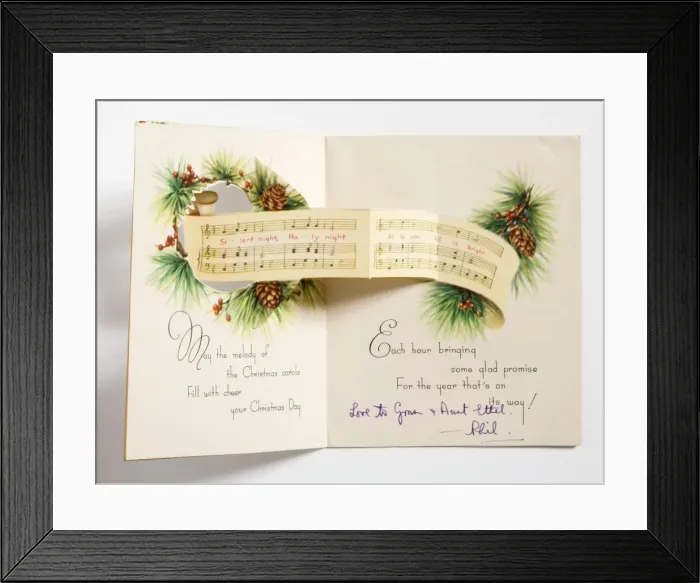 Si - lent night, Ho - ly night
All is calm, all is bright
May the melody of
the Christmas carols
Fill with cheer
your Christmas Day
Each hour bringing
some glad promise
For the year that's on
its way!
Love to Gram & Aunt Ethel.
— Phil.